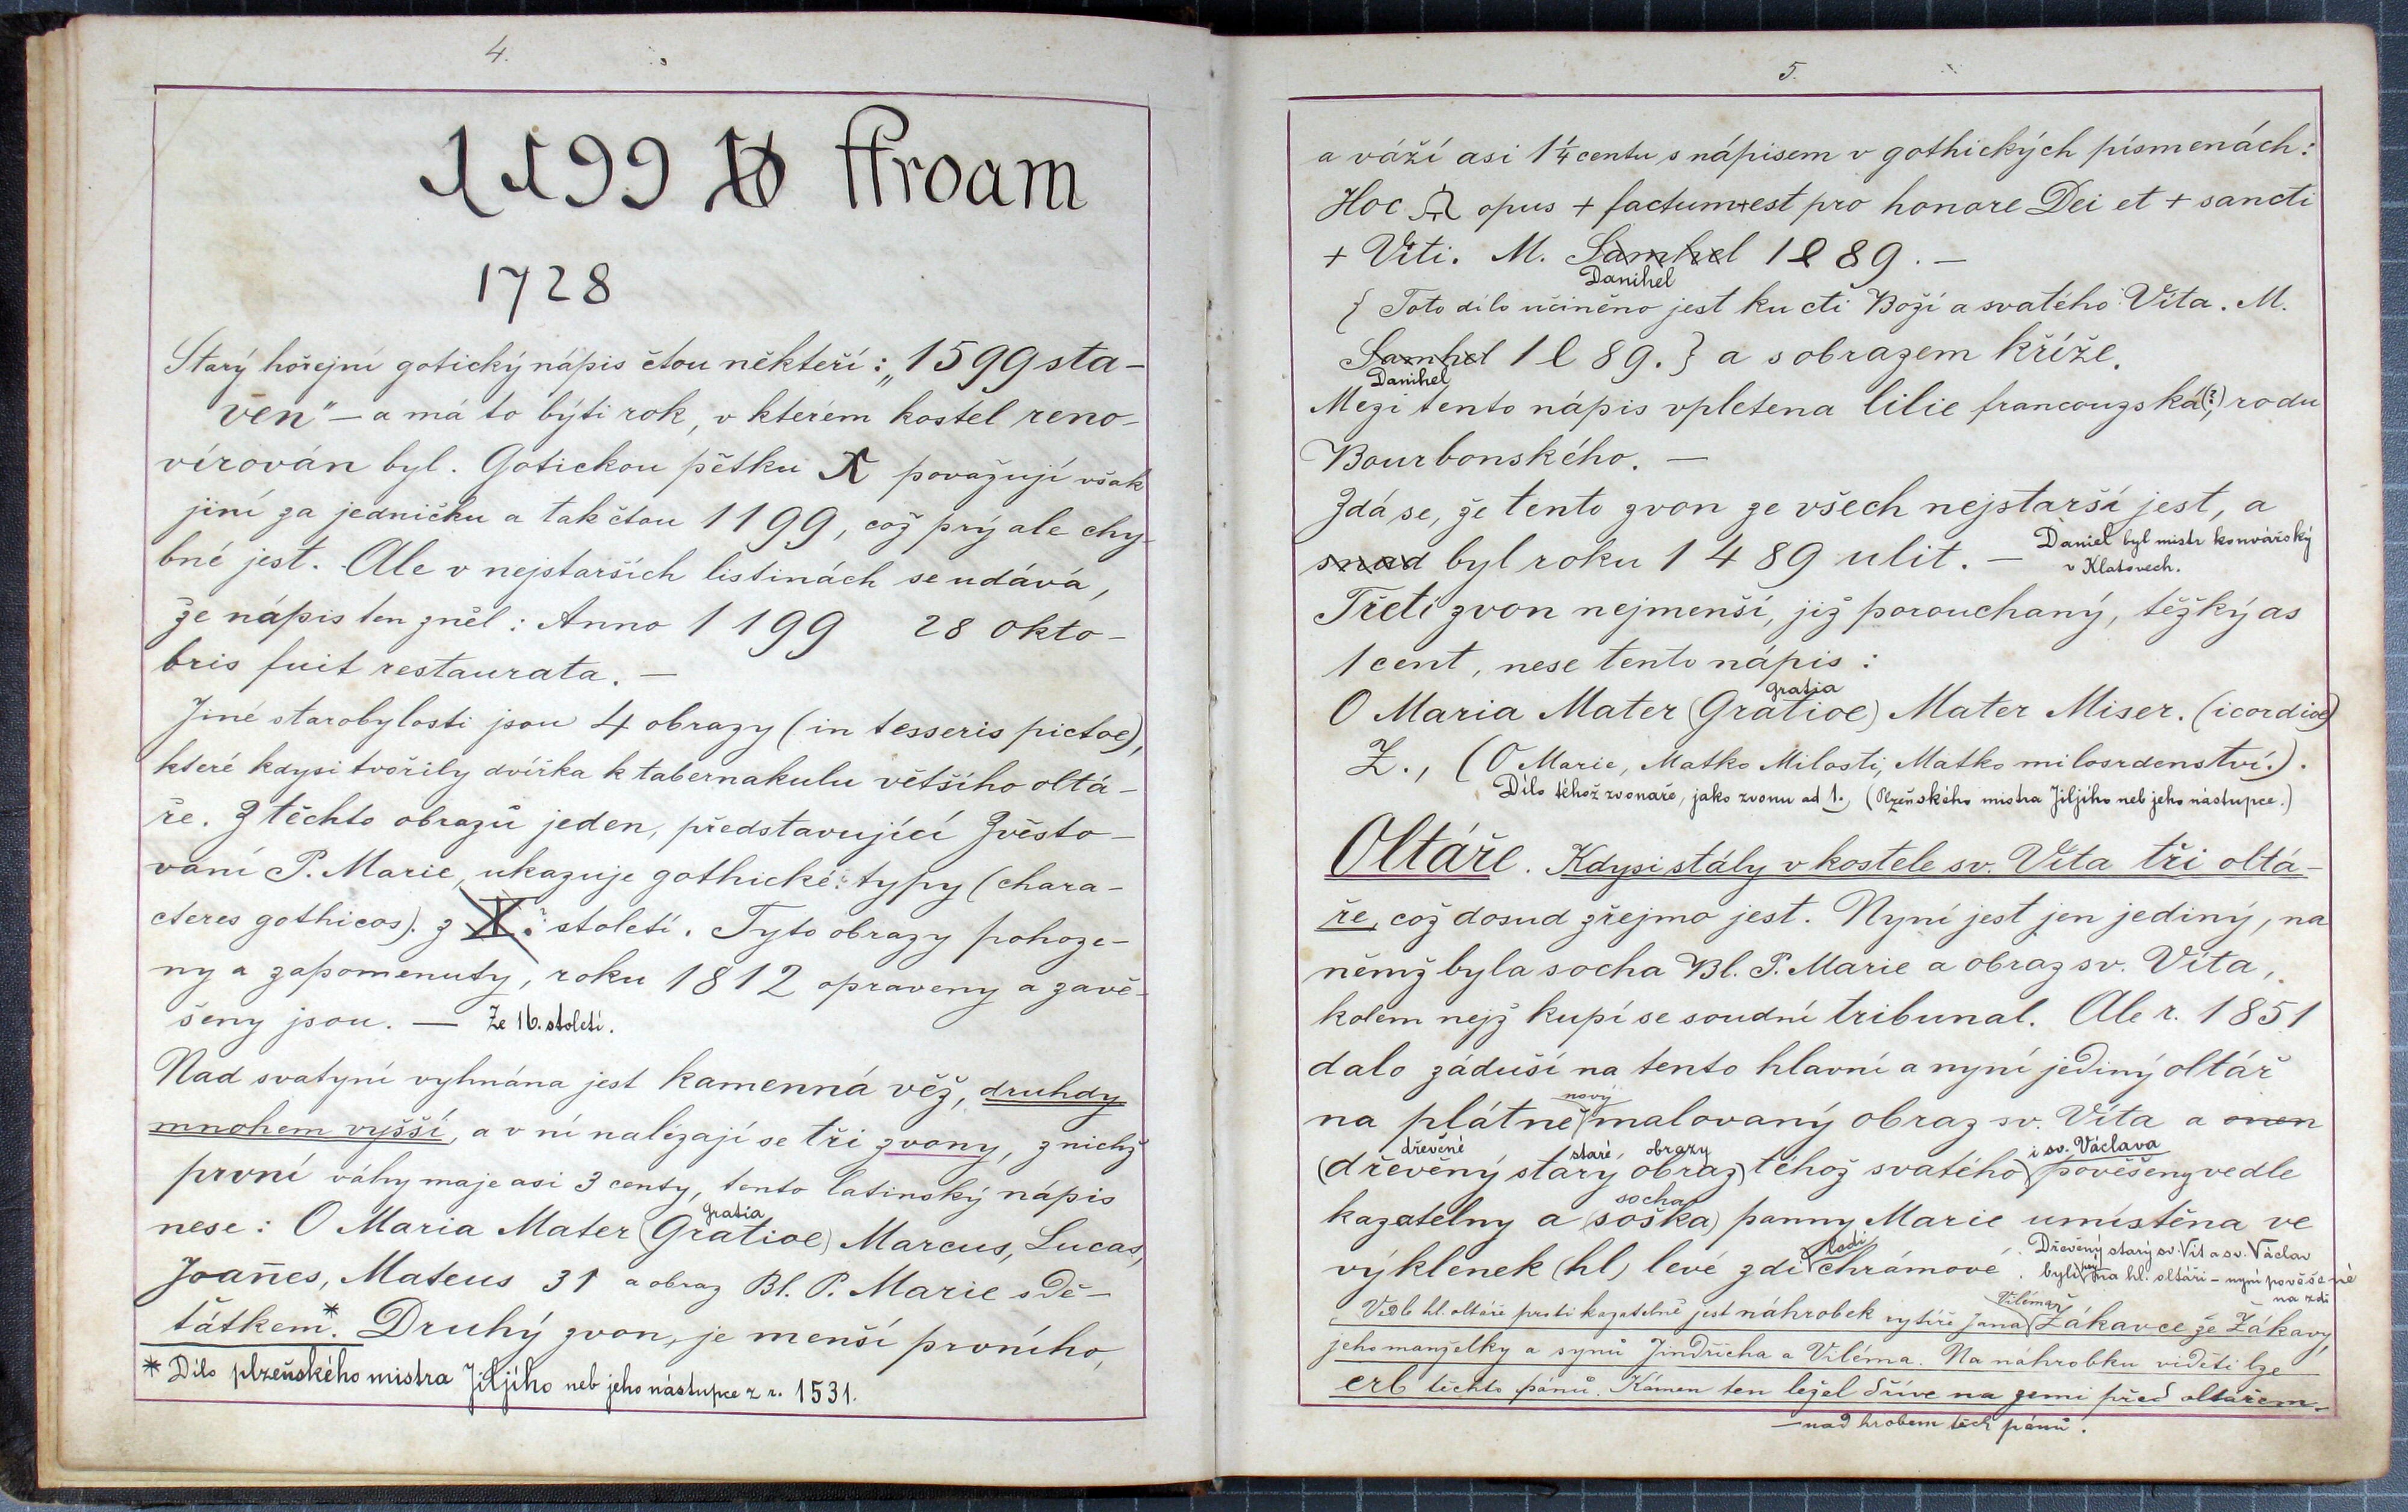 4.
1199 ffroam
1728
Starý hořejní gotický nápis čtou někteří: „1599 sta-
ven" – a má to býti rok, v kterém kostel reno-
vírován byl. Gotickou pětku považují však
jiní za jedničku a tak čtou 1199, což prý ale chy-
bné jest. Ale v nejstarších listinách se udává,
že nápis ten zněl: Anno 1199 28 Okto-
bris fuit restaurata. –
Jiné starobylosti jsou 4 obrazy (in tesseris pictoe),
které kdysi tvořily dvířka k tabernakulu většího oltá-
ře. Z těchto obrazů jeden, představující Zvěsto-
vaní P. Marie, ukazuje gothické typy (chara-
cteres gothicos). z X.? století. Tyto obrazy poháze-
ny a zapomenuty, roku 1812 opraveny a zavě-
šeny jsou. — Ze 16. století.
Nad svatyní vyhnána jest kamenná věž, druhdy
mnohem vyšší, a v ní nalézají se tři zvony, z nichž
první váhy maje asi 3 centy, tento latinský nápis
gratia
nese: O Maria Mater (Gratioe) Marcus, Lucas,
Joañes, Mateus 31 a obraz Bl. P. Marie s Dě-
tátkem*. Druhý zvon, je menší prvního,
* Dílo plzeňského mistra Jiljího neb jeho nástupce z r. 1531.
5.
a váží asi 1¼ centu s nápisem v gothických písmenách:
Hoc opus + factum+est pro honore Dei et + sancti
+ Viti. M. Samhel 1l89. –
Danihel
{ Toto dílo učiněno jest ku cti Boží a svatého Víta. M.
Samhel 1l89.} a s obrazem kříže.
Danihel
Mezi tento nápis vpletena lilie francouzská(?), rodu
Bourbonského. –
Zdá se, že tento zvon ze všech nejstarší jest, a
snad byl roku 1489 ulit. – Daniel byl mistr konvářský
v Klatovech.
Třetí zvon nejmenší, již porouchaný, těžký as
1 cent, nese tento nápis:
gratia
O Maria Mater (Gratioe) Mater Miser. (icordioe)
Z., (O Marie, Matko Milosti, Matko milosrdenství.).
Dílo téhož zvonaře, jako zvonu ad 1., (Plzeňského mistra Jiljího neb jeho nástupce.)
Oltáře. Kdysi stály v kostele sv. Víta tři oltá-
ře, což dosud zřejmo jest. Nyní jest jen jediný, na
němž byla socha Bl. P. Marie a obraz sv. Víta,
kolem nejž kupí se soudní tribunal. Ale r. 1851
dalo záduší na tento hlavní a nyní jediný oltář
nový
na plátně malovaný obraz sv. Víta a onen
dřevěné staré, obrazy i sv. Václava
(dřevěný starý obraz) téhož svatého pověšeny vedle
socha
kazatelny a (soška) panny Marie umístěna ve
lodi
výklenek (hl) levé zdi chrámové. Dřevěný starý sv. Vít a sv. Václav
byli na hl. oltáři – nyní pověšené
na zdi
Vilémař
Vedle hl. oltáře proti kazatelně jest náhrobek rytíře Jana Žákavce že Žákavy,
jeho manželky a synů Jindřicha a Viléma. Na náhrobku viděti lze
erb těchto pánů. Kámen ten ležel dříve na zemi před oltářem
– nad hrobem těch pánů.